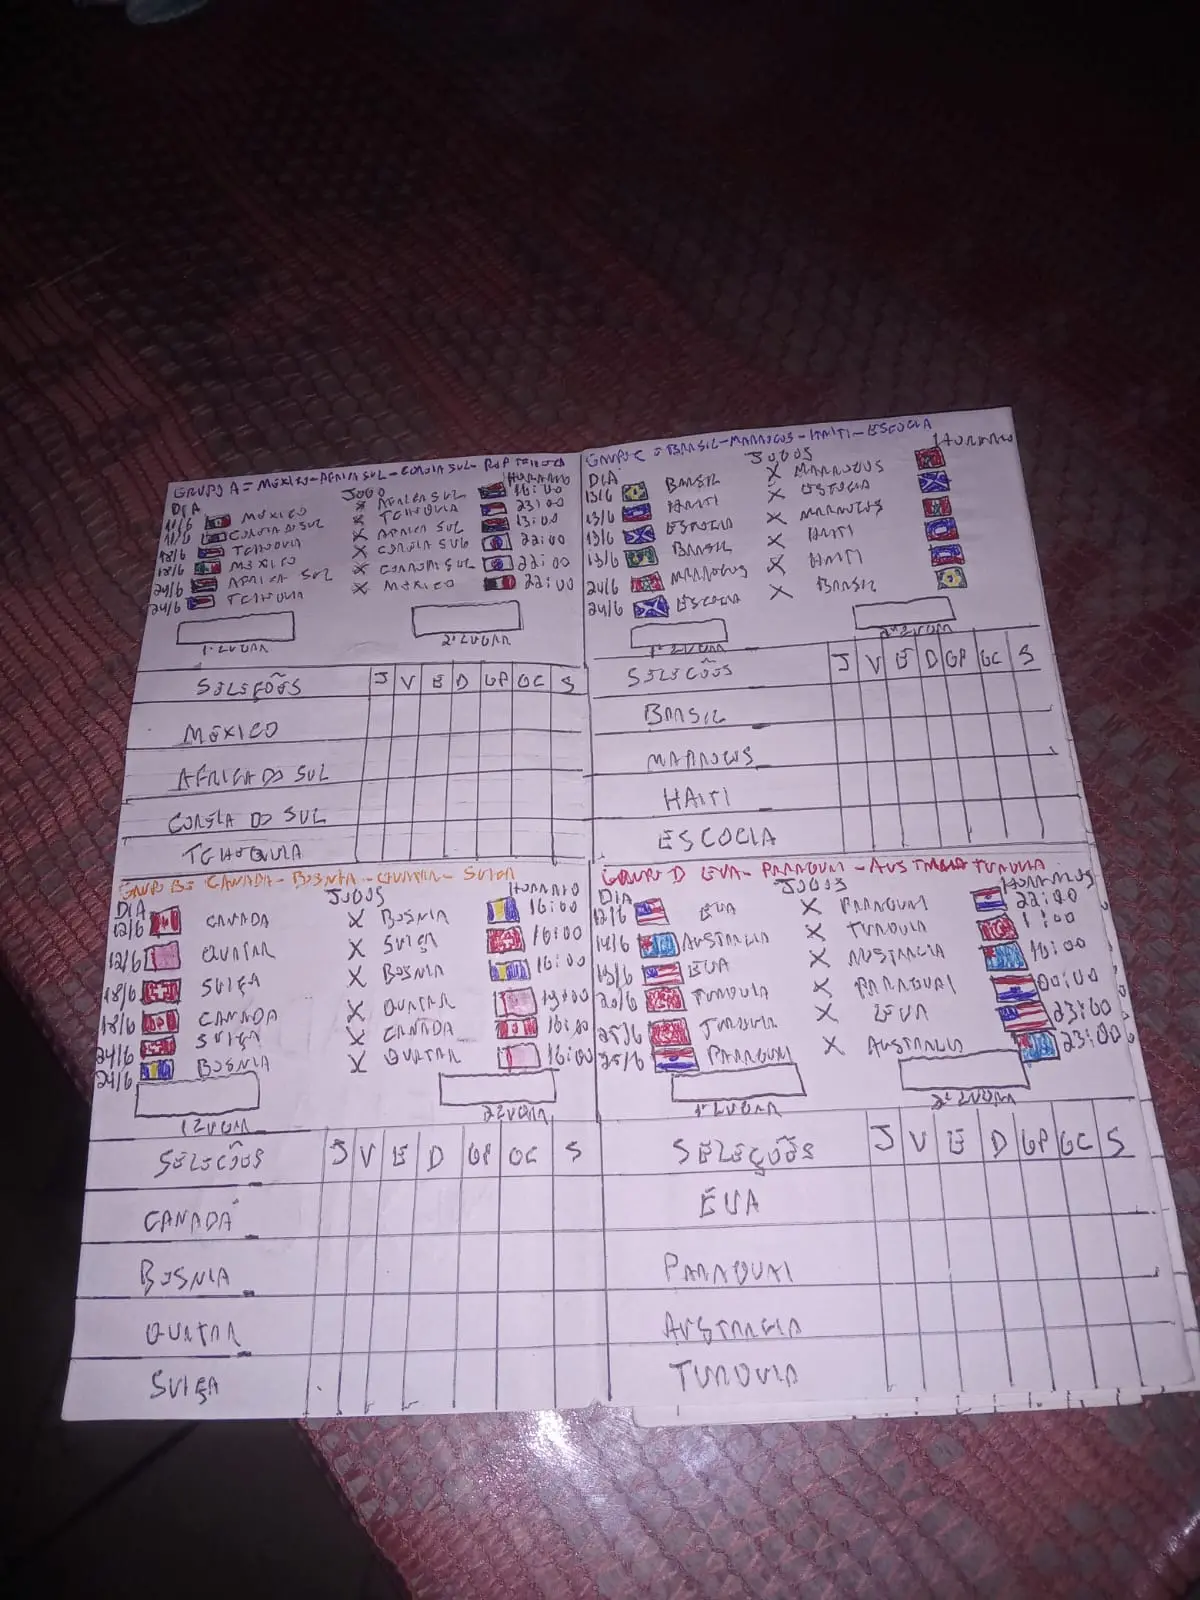 GRUPO A = MÉXICO - AFRICA SUL - COREIA SUL - REP TCHECA
DIA JOGO HORARIO
11/6 MÉXICO X AFRICA SUL 16:00
11/6 COREIA DO SUL X TCHEQUIA 23:00
18/6 TCHEQUIA X AFRICA SUL 13:00
18/6 MÉXICO X COREIA SUL 22:00
24/6 AFRICA SUL X COREIA SUL 22:00
24/6 TCHEQUIA X MÉXICO 22:00
1º LUGAR 2º LUGAR
SELEÇÕES J V E D GP GC S
MÉXICO
AFRICA DO SUL
COREIA DO SUL
TCHEQUIA
GRUPO C = BRASIL - MARROCOS - HAITI - ESCOCIA
DIA JOGOS HORARIO
13/6 BRASIL X MARROCOS
13/6 HAITI X ESCOCIA
13/6 ESCOCIA X MARROCOS
13/6 BRASIL X HAITI
24/6 MARROCOS X HAITI
24/6 ESCOCIA X BRASIL
1º LUGAR 2º LUGAR
SELEÇÕES J V E D GP GC S
BRASIL
MARROCOS
HAITI
ESCOCIA
GRUPO B = CANADA - BOSNIA - QUATAR - SUIÇA
DIA JOGOS HORARIO
12/6 CANADA X BOSNIA 16:00
12/6 QUATAR X SUIÇA 16:00
18/6 SUIÇA X BOSNIA 16:00
18/6 CANADA X QUATAR 19:00
24/6 SUIÇA X CANADA 16:00
24/6 BOSNIA X QUATAR 16:00
1 LUGAR 2 LUGAR
SELEÇÕES J V E D GP GC S
CANADÁ
BOSNIA
QUATAR
SUIÇA
GRUPO D EUA - PARAGUAI - AUSTRALIA TURQUIA
DIA JOGOS HORARIOS
12/6 EUA X PARAGUAI 22:00
14/6 AUSTRALIA X TURQUIA 1:00
19/6 EUA X AUSTRALIA 16:00
20/6 TURQUIA X PARAGUAI 00:00
25/6 TURQUIA X EUA 23:00
25/6 PARAGUAI X AUSTRALIA 23:00
1º LUGAR 2º LUGAR
SELEÇÕES J V E D GP GC S
EUA
PARAGUAI
AUSTRALIA
TURQUIA